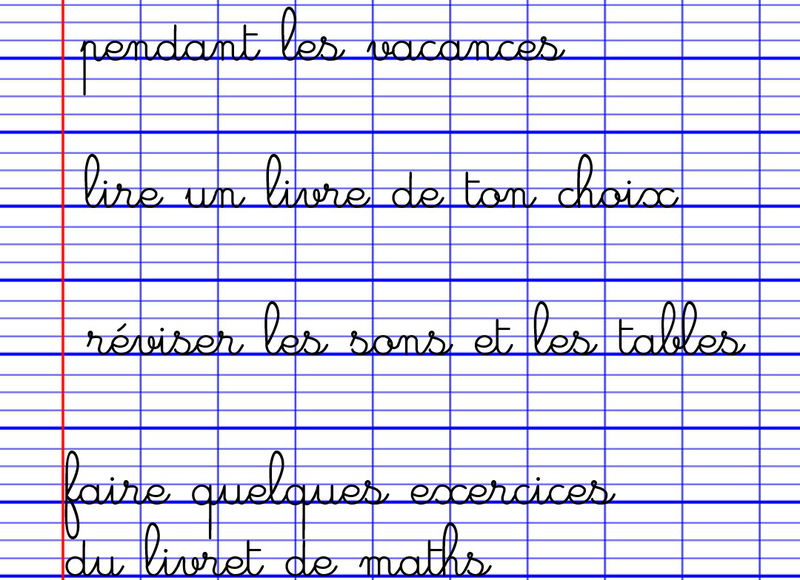 pendant les vacances
lire un livre de ton choix
réviser les sons et les tables
faire quelques exercices
du livret de maths